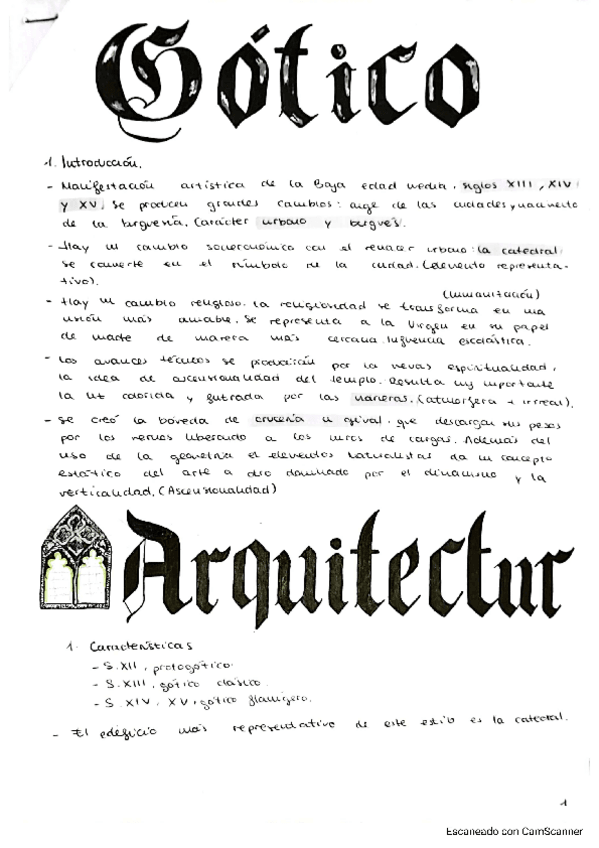 Gótico
1. Introducción.
- Manifestación artística de la Baja edad media. siglos XIII, XIV
y XV. Se producen grandes cambios: auge de las ciudades y nacimiento
de la burguesía. Carácter urbano y burgués.
- Hay un cambio socioeconómico con el renacer urbano: la catedral
se convierte en el símbolo de la ciudad. (elemento representa-
tivo).
(humanización)
- Hay un cambio religioso. la religiosidad se transforma en una
visión más amable. Se representa a la Virgen en su papel
de madre de manera más cercana. Influencia escolástica.
- Los avances técnicos se producirán por la nueva espiritualidad,
la idea de ascensionalidad del templo. Resulta muy importante
la luz colorida y filtrada por las vidrieras. (atmósfera + irreal).
- Se creó la bóveda de crucería u ojival. que descargan sus pesos
por los nervios liberando a los muros de cargas. Además del
uso de la geometría el elementos naturalistas da un concepto
estático del arte a otro dominado por el dinamismo y la
verticalidad. (Ascensionalidad)
Arquitectur
1. Características
- S. XII, protogótico.
- S. XIII, gótico clásico.
- S. XIV, XV, gótico flamígero.
- El edificio más representativo de este estilo es la catedral.
1
Escaneado con CamScanner